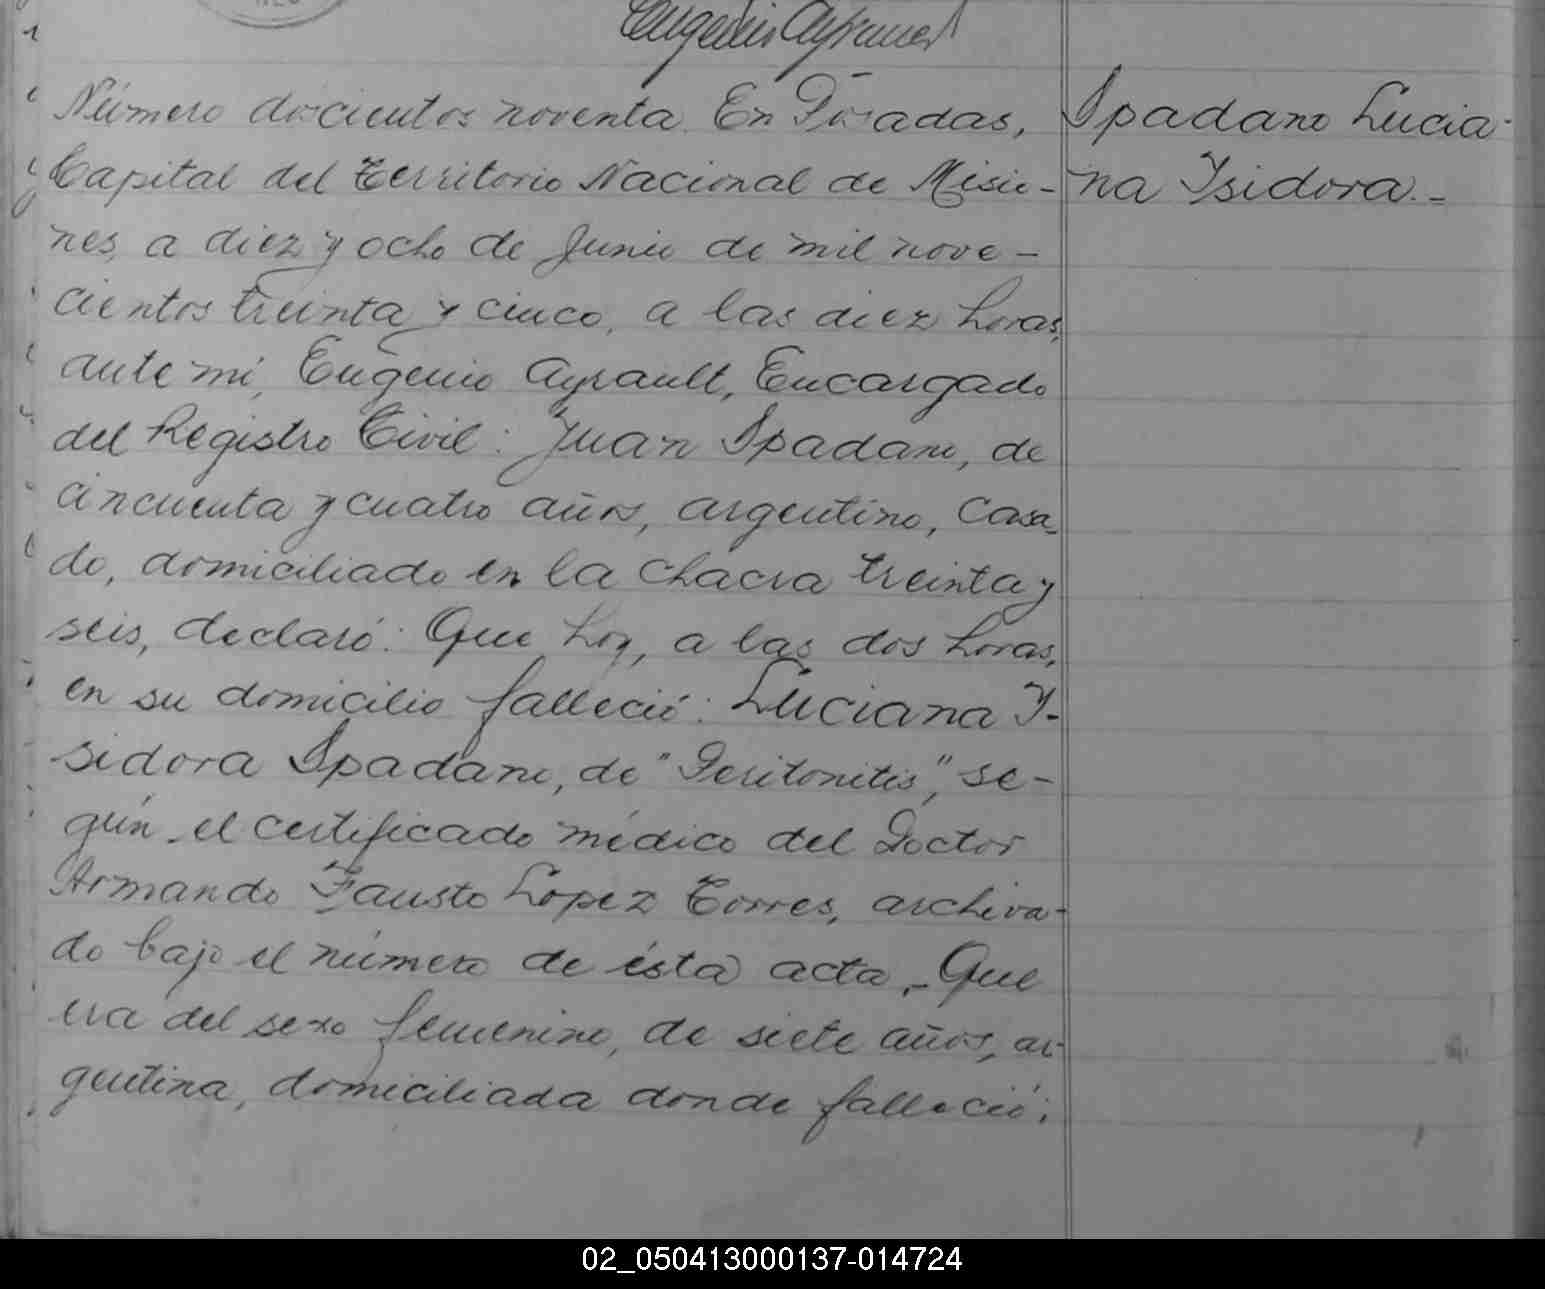 Eugenio Ayrault
Número doscientos noventa. En Posadas,
Capital del Territorio Nacional de Misio-
nes, a diez y ocho de Junio de mil nove-
cientos treinta y cinco, a las diez horas,
ante mí, Eugenio Ayrault, Encargado
del Registro Civil: Juan Spadano, de
cincuenta y cuatro años, argentino, casa-
do, domiciliado en la chacra treinta y
seis, declaró: Que hoy, a las dos horas,
en su domicilio falleció: Luciana I-
sidora Spadano, de "Peritonitis", se-
gún el certificado médico del Doctor
Armando Fausto López Torres, archiva-
do bajo el número de ésta acta.- Que
era del sexo femenino, de siete años, ar-
gentina, domiciliada donde falleció;
Spadano Lucia-
na Isidora.-
02_050413000137-014724